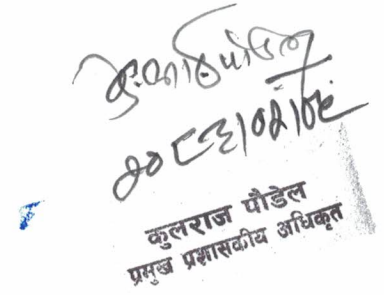 २०८३।०२।१८
कुलराज पौडेल
प्रमुख प्रशासकीय अधिकृत